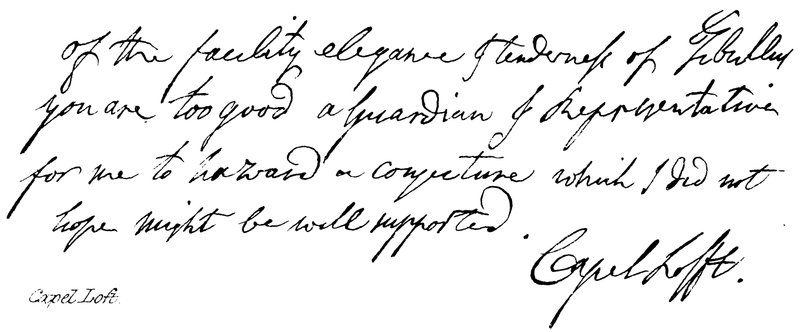 of the facility elegance & tenderness of Tibullus
you are too good a Guardian & Representative
for me to hazard a conjecture which I did not
hope might be well supported.
Capel Lofft.
Capel Loft.